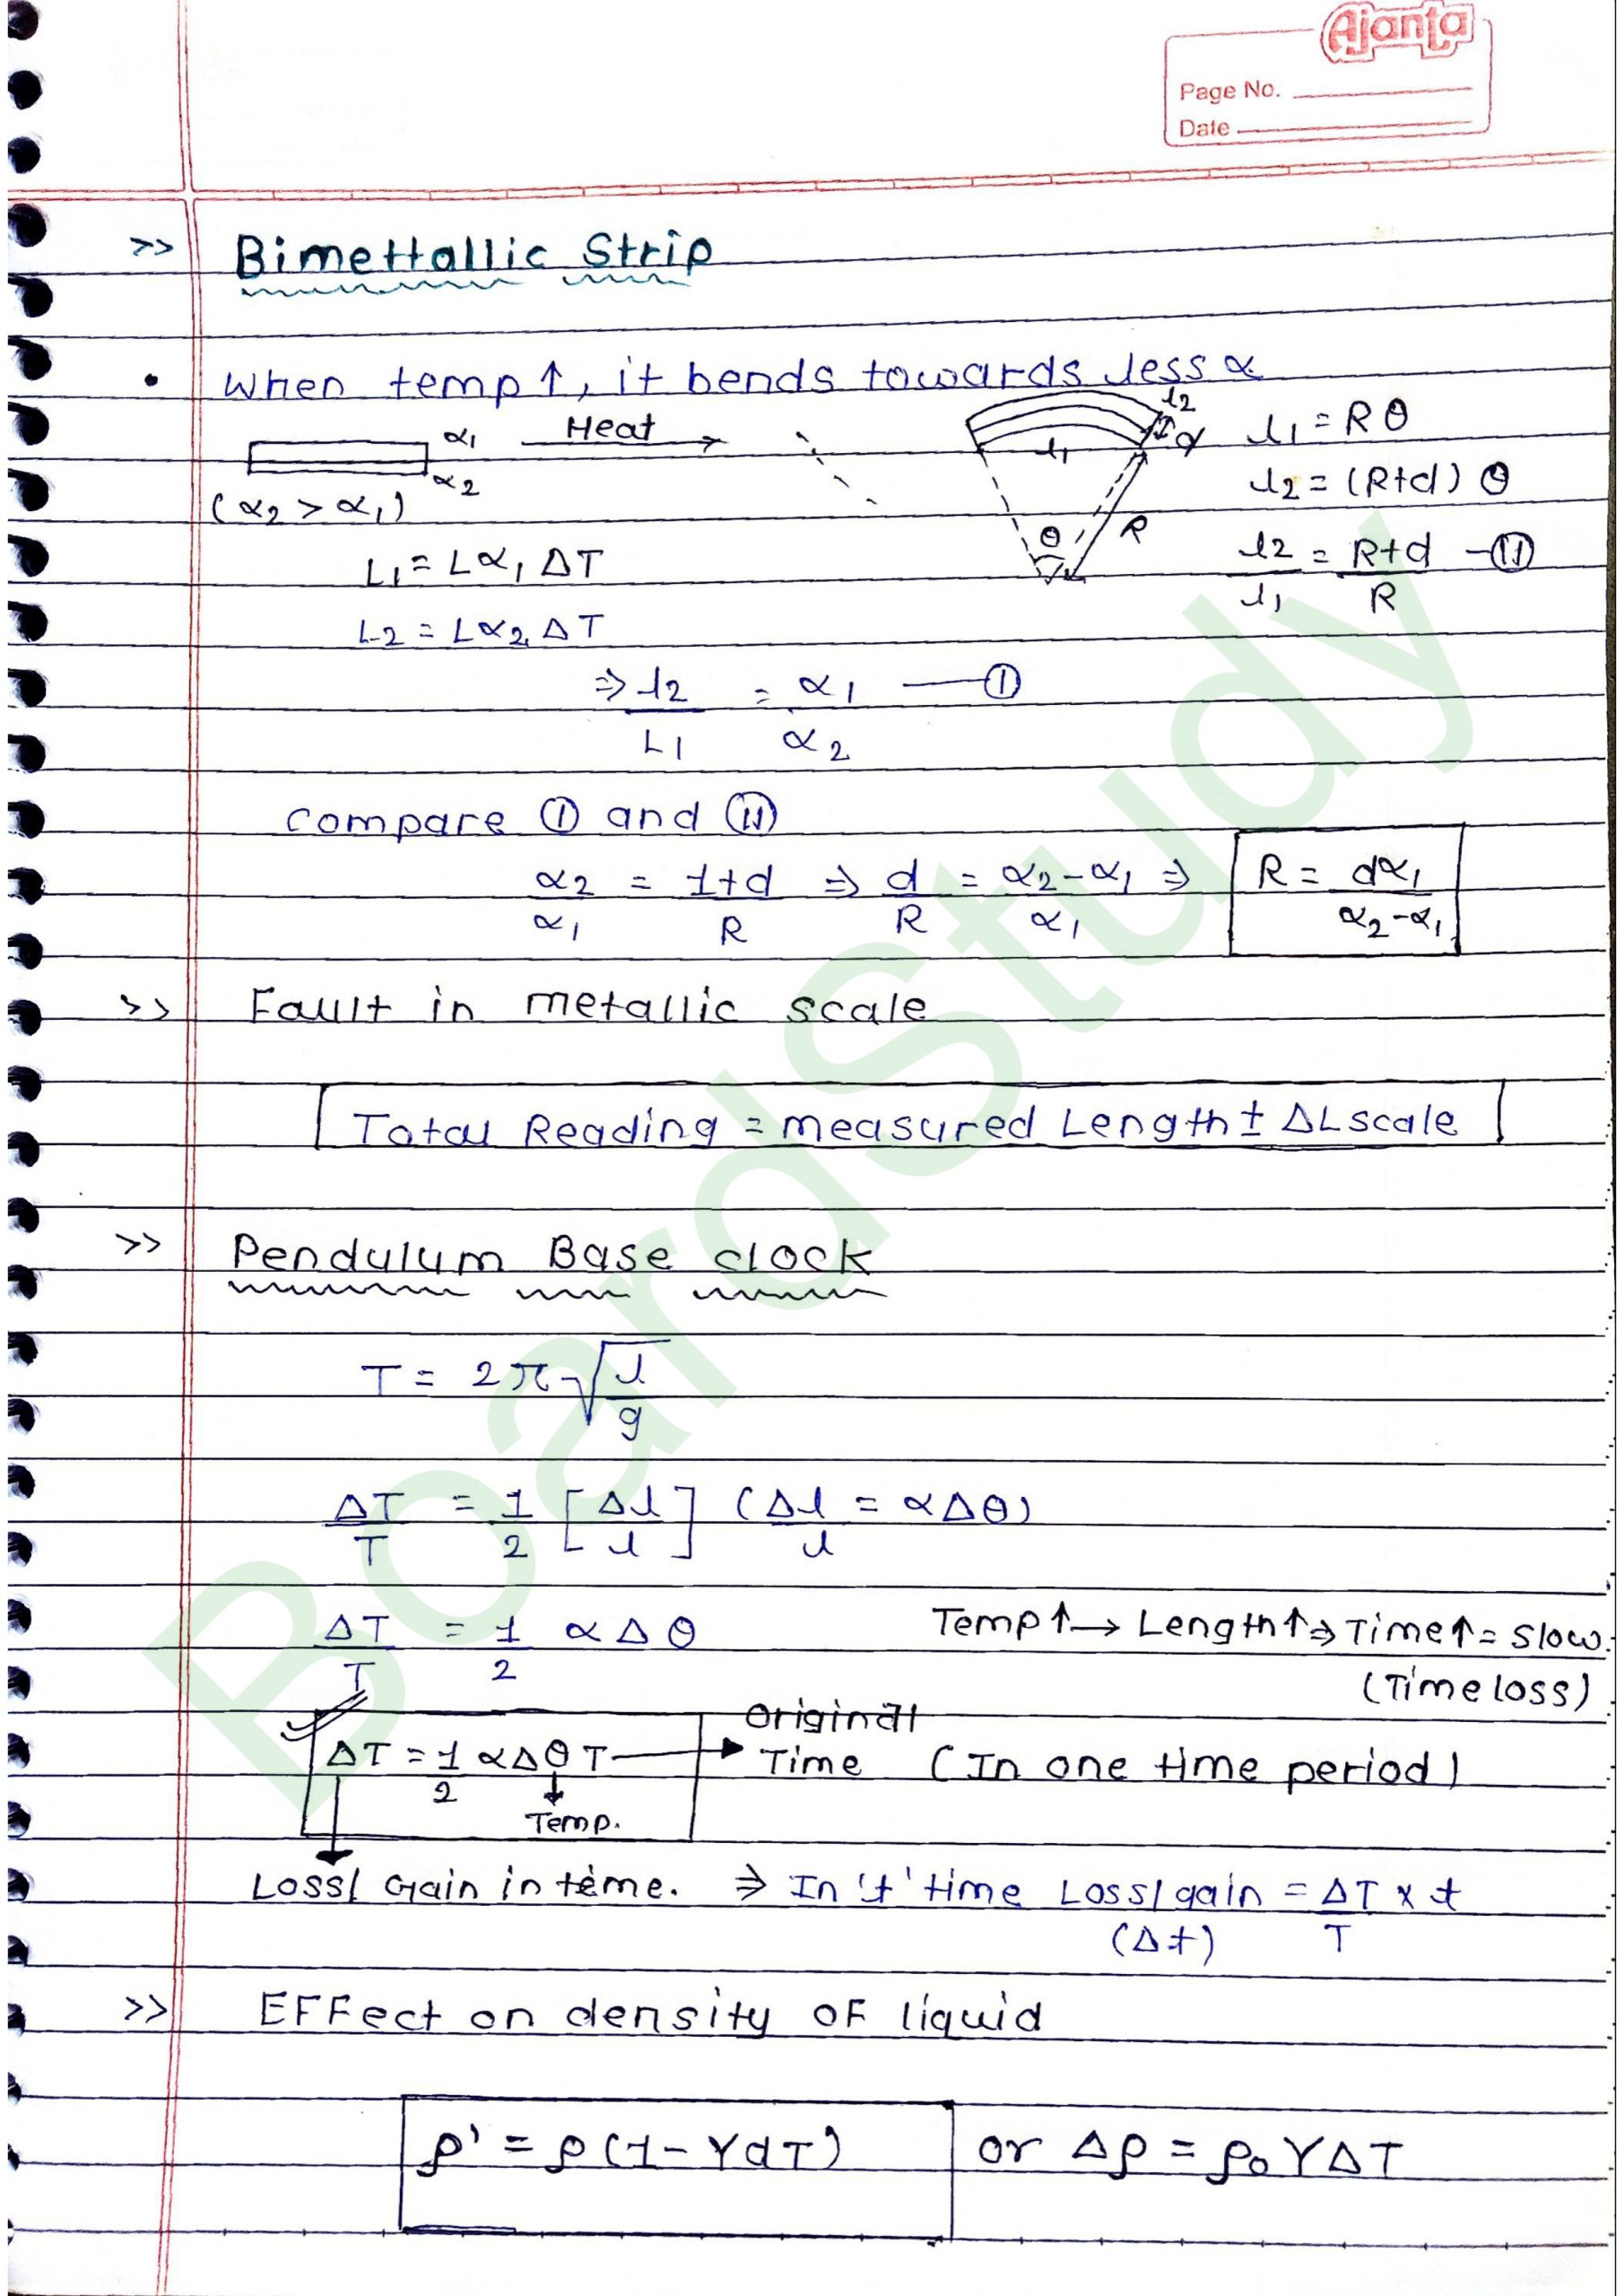 Ajanta
Page No.
Date
>> Bimettallic Strip
• when temp ↑, it bends towards less α
α₁ Heat → l₂ d l₁ = Rθ
α₂ l₁
(α₂ > α₁) l₂ = (R+d) θ
θ R
L₁ = Lα₁ ΔT l₂/l₁ = R+d/R -(II)
L₂ = Lα₂ ΔT
⇒ l₂/L₁ = α₁/α₂ —(I)
compare (I) and (II)
α₂/α₁ = 1+d/R ⇒ d/R = α₂-α₁/α₁ ⇒ R = dα₁/α₂-α₁
>> Fault in metallic scale
Total Reading = measured Length ± ΔL scale
>> Pendulum Base clock
T = 2π √l/g
ΔT/T = 1/2 [Δl/l] (Δl/l = αΔθ)
ΔT/T = 1/2 αΔθ Temp↑→ Length↑⇒ Time↑ = Slow.
(Time loss)
original
ΔT = 1/2 αΔθ T → Time (In one time period)
Temp.
Loss/ Gain in time. ⇒ In 't' time Loss/gain = ΔT/T × t
(Δt)
>> EFFect on density OF liquid
ρ' = ρ(1- γdT) or Δρ = ρ₀γΔT
BoardStudy